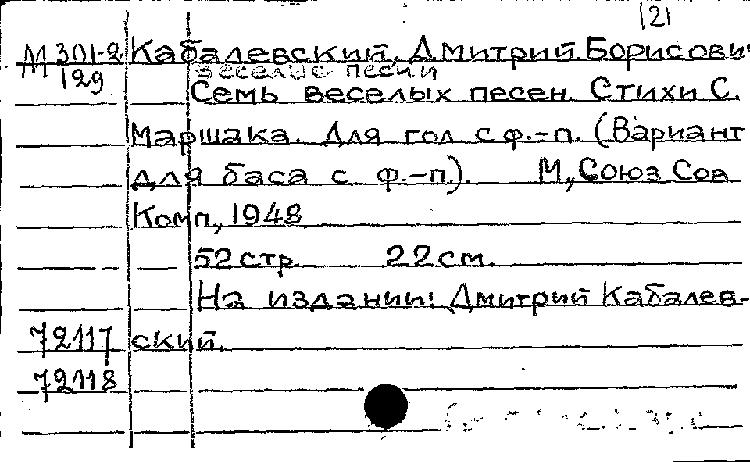 121
М301-2 Кабалевский, Дмитрий Борисович
129 веселые песни
Семь веселых песен. Стихи С.
Маршака. Для гол с ф.-п. (Вариант
для баса с ф.-п.). М, Союз Сов
Комп, 1948
52 стр 22 см.
На издании: Дмитрий Кабалев-
72117 ский.
72118